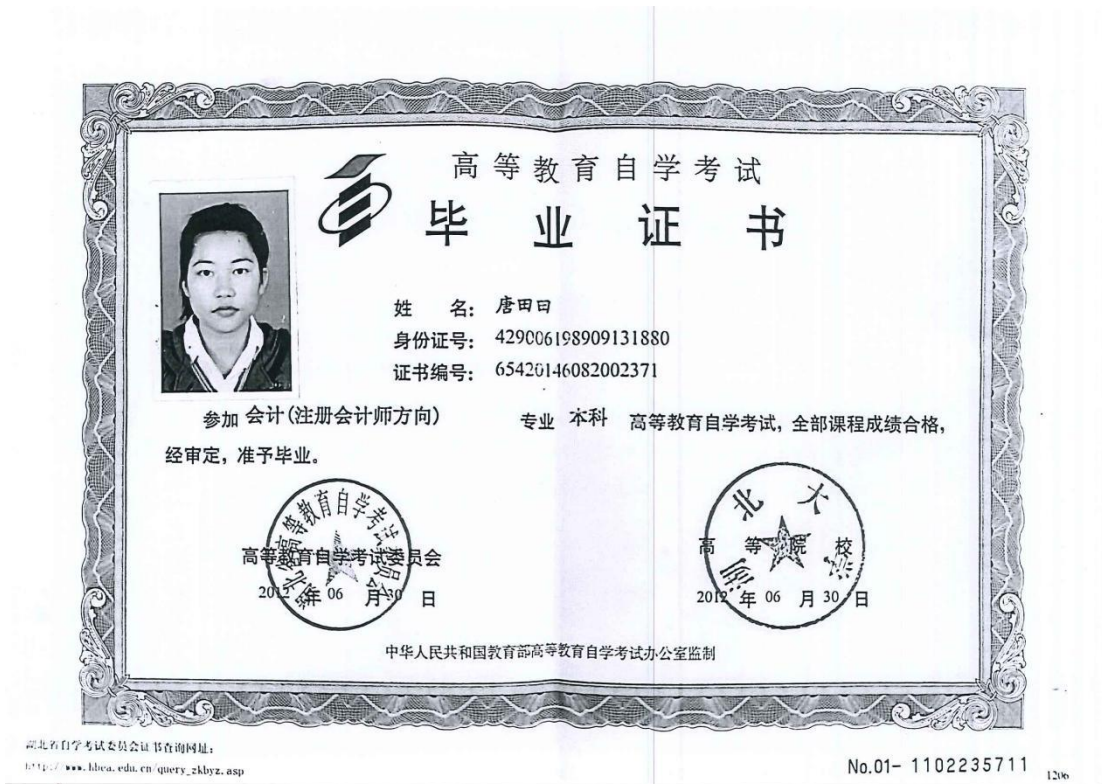 高等教育自学考试
毕业证书
姓 名: 唐田曰
身份证号: 429006198909131880
证书编号: 65420146082002371
参加 会计(注册会计师方向) 专业 本科 高等教育自学考试，全部课程成绩合格，
经审定，准予毕业。
湖北省高等教育自学考试委员会
高等教育自学考试委员会
2012 年 06 月 30 日
湖北大学
高等院校
2012 年 06 月 30 日
中华人民共和国教育部高等教育自学考试办公室监制
湖北省自学考试委员会证书查询网址:
http://www.hbea.edu.cn/query_zkbyz.asp
No.01- 1102235711
1206